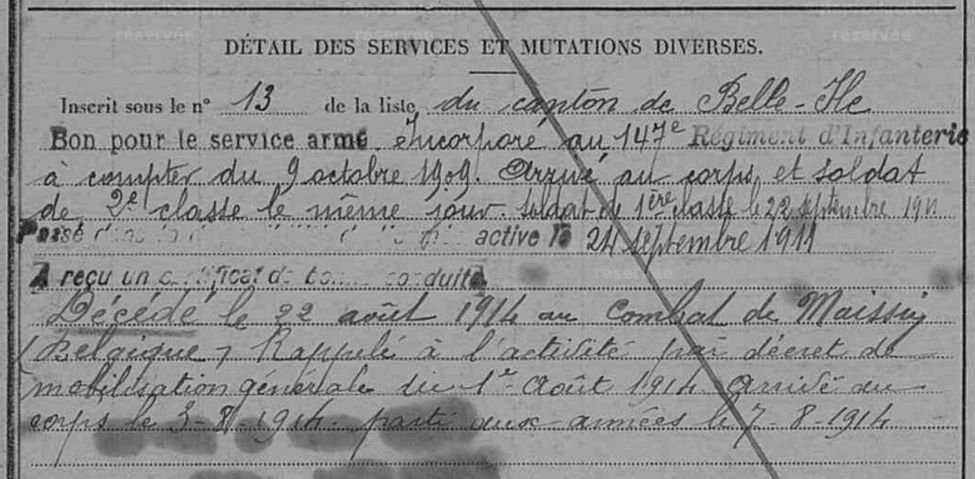 DÉTAIL DES SERVICES ET MUTATIONS DIVERSES.
Inscrit sous le n° 13 de la liste du canton de Belle-Ile
Bon pour le service armé. Incorporé au 147e Régiment d'Infanterie
à compter du 9 octobre 1909. Arrivé au corps et soldat
de 2e classe le même jour. Soldat de 1ère classe le 22 septembre 1911
Passé dans la active le 24 septembre 1911
A reçu un certificat de bonne conduite.
Décédé le 22 août 1914 au Combat de Maissin
(Belgique) Rappelé à l'activité par décret de
mobilisation générale du 1er Août 1914 arrivé au
corps le 3-8-1914. parti aux armées le 7-8-1914